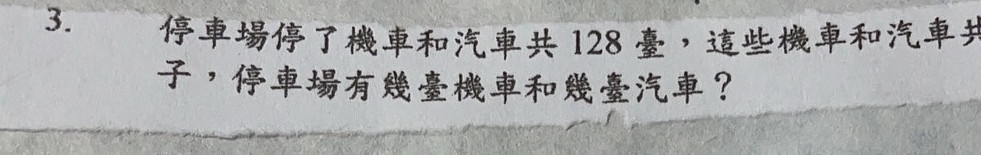 3. 停車場停了機車和汽車共 128 臺，這些機車和汽車共
子，停車場有幾臺機車和幾臺汽車？